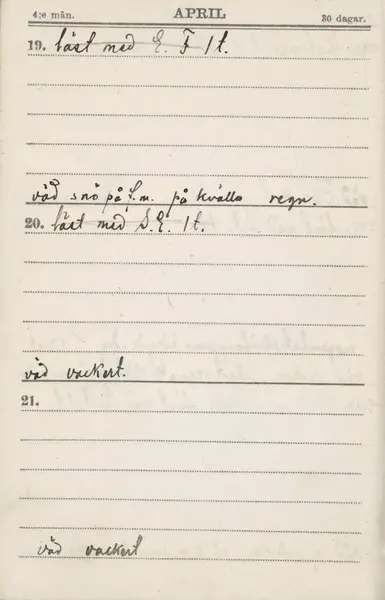 4:e mån. APRIL 30 dagar.
19. läst med E. F 1 t.
väd snö på f.m. på kvälln regn.
20. läst med S. E. 1 t.
väd vackert.
21.
väd vackert